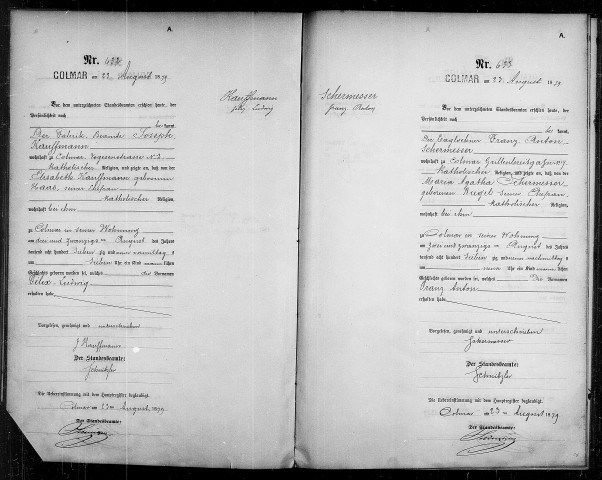 A.
Nr. 632
COLMAR am 23 August 1879
Kauffmann
Felix Ludwig
Vor dem unterzeichneten Standesbeamten erschien heute, der
Persönlichkeit nach
be kannt,
Der Fabrik-Beamte Joseph
Kauffmann
wohnhaft zu Colmar, Vogesenstrasse N. 2
katholischer Religion, und zeigte an, daß von der
Elisabeth Kauffmann geborenen
Haas, seiner Ehefrau
katholischer Religion,
wohnhaft bei ihm
zu Colmar in seiner Wohnung
am drei und zwanzigsten August des Jahres
tausend acht hundert siebenzig und neun vormittags
um sieben Uhr ein Kind männlichen
Geschlechts geboren worden sei, welches die Vornamen
Felix Ludwig
erhalten habe.
Vorgelesen, genehmigt und unterschrieben
J Kauffmann
Der Standesbeamte:
Schnitzler
Die Uebereinstimmung mit dem Hauptregister beglaubigt.
Colmar am 23ten August 1879
Der Standesbeamte:
A.
Nr. 633
COLMAR am 23 August 1879
Schermesser
Franz Anton
Vor dem unterzeichneten Standesbeamten erschien heute, der
Persönlichkeit nach
be kannt,
Der Taglöhner Franz Anton
Schermesser
wohnhaft zu Colmar
katholischer Religion, und zeigte an, daß von der
Maria Agatha Schermesser
geborenen Riegel seiner Ehefrau
katholischer Religion,
wohnhaft bei ihm
zu Colmar in seiner Wohnung
am zwei und zwanzigsten August des Jahres
tausend acht hundert siebenzig und neun nachmittags
um neun Uhr ein Kind männlichen
Geschlechts geboren worden sei, welches Die Vornamen
Franz Anton
erhalten habe.
Vorgelesen, genehmigt und unterschrieben
Schermesser
Der Standesbeamte:
Schnitzler
Die Uebereinstimmung mit dem Hauptregister beglaubigt.
Colmar am 23ten August 1879
Der Standesbeamte: